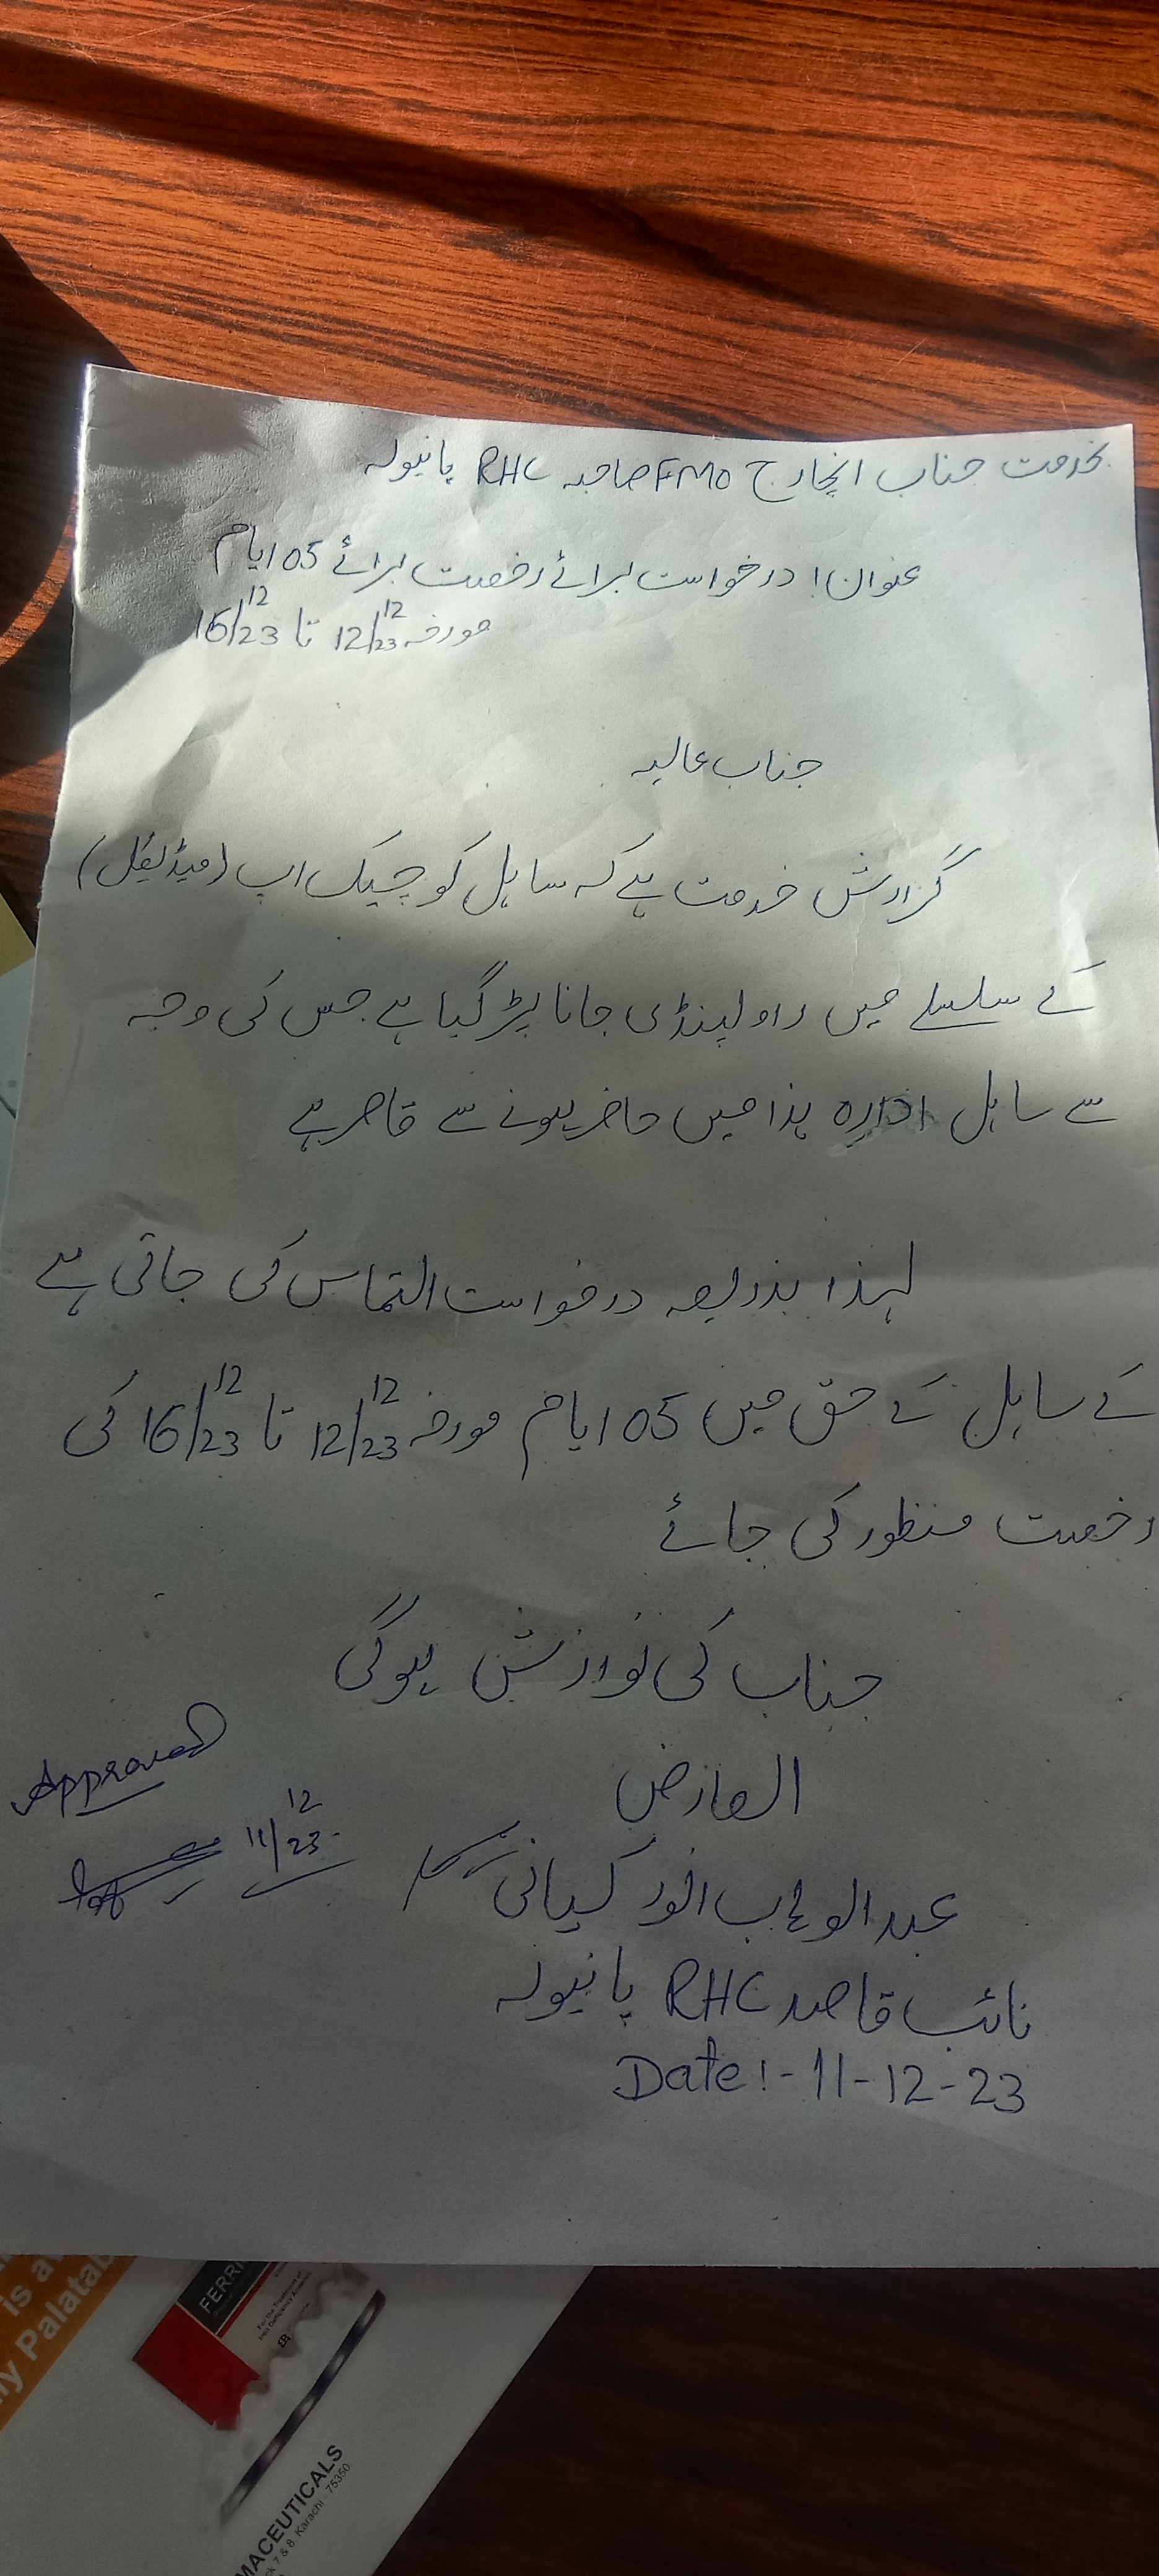 بخدمت جناب انچارج FMO صاحبہ RHC پانیولہ
عنوان: درخواست برائے رخصت برائے 05 ایام
مورخہ 12/12/23 تا 16/12/23
جناب عالیہ
گزارش خدمت ہے کہ سائل کو چیک اپ (میڈیکل)
کے سلسلے میں راولپنڈی جانا پڑ گیا ہے جس کی وجہ
سے سائل ادارہ ہذا میں حاضر ہونے سے قاصر ہے
لہذا بذریعہ درخواست التماس کی جاتی ہے
کے سائل کے حق میں 05 ایام مورخہ 12/12/23 تا 16/12/23 کی
رخصت منظور کی جائے
جناب کی نوازش ہوگی
العارض
Approved
11/12/23
عبدالوہاب انور کیانی
نائب قاصد RHC پانیولہ
Date:- 11-12-23
is a
ly Palatab
FERRI
For the Treatment of
Iron Deficiency Anaemia
MACEUTICALS
ck 7 & 8, Karachi - 75350